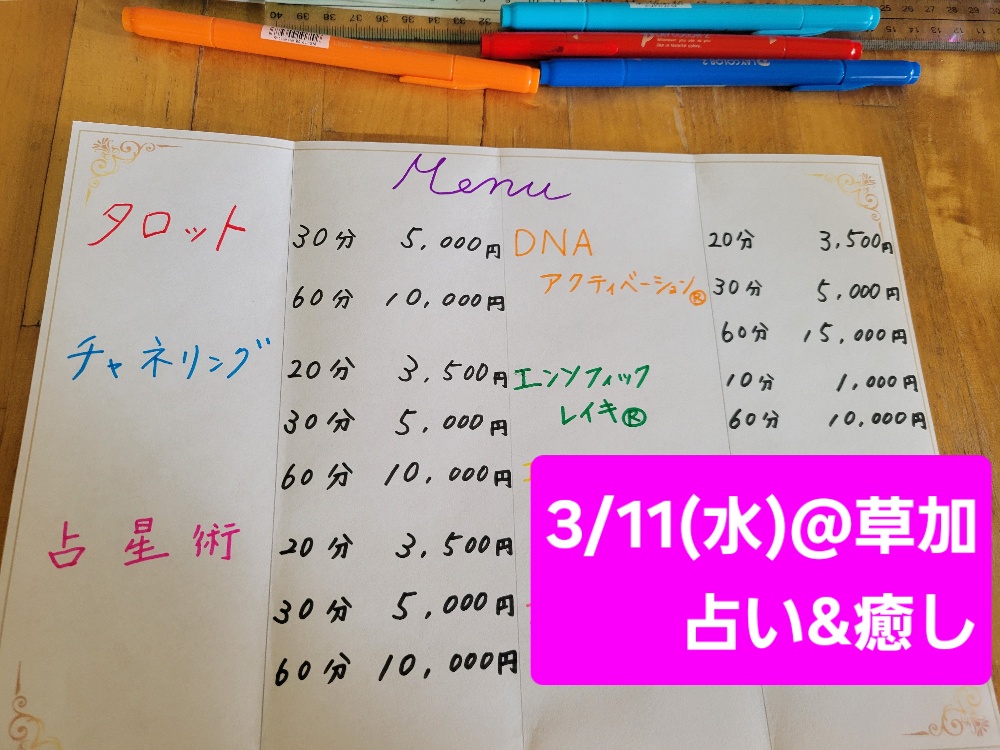 Menu
タロット
30分 5,000円
60分 10,000円
チャネリング
20分 3,500円
30分 5,000円
60分 10,000円
占星術
20分 3,500円
30分 5,000円
60分 10,000円
DNA
アクティベーション®
20分 3,500円
30分 5,000円
60分 15,000円
エンソフィック
レイキ®
10分 1,000円
60分 10,000円
3/11(水)@草加
占い&癒し